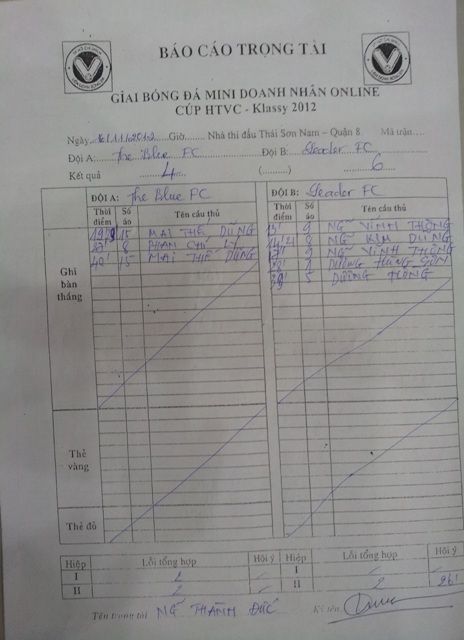 BÁO CÁO TRỌNG TÀI
GIẢI BÓNG ĐÁ MINI DOANH NHÂN ONLINE
CÚP HTVC - Klassy 2012
Ngày 16/11/2012 Giờ Nhà thi đấu Thái Sơn Nam – Quận 8 Mã trận
Đội A: The Blue FC Đội B: Leader FC
Kết quả 4 (..........) 6
ĐỘI A: The Blue FC ĐỘI B: Leader FC
Thời điểm Số áo Tên cầu thủ Thời điểm Số áo Tên cầu thủ
Ghi bàn thắng
15 MAI THẾ DŨNG 9 NGÔ VĨNH THỐNG
8 PHAN CHÍ LÝ 8 NGÔ KIM DŨNG
40' 15 MAI THẾ DŨNG 9 NGÔ VĨNH THỐNG
DƯƠNG HÙNG SƠN
5 DƯƠNG THỐNG
Thẻ vàng
Thẻ đỏ
Hiệp Lỗi tổng hợp Hội ý Hiệp Lỗi tổng hợp Hội ý
I 2 I
II 2 II 2 26'
Tên trọng tài NGÔ THÀNH ĐỨC Kí tên